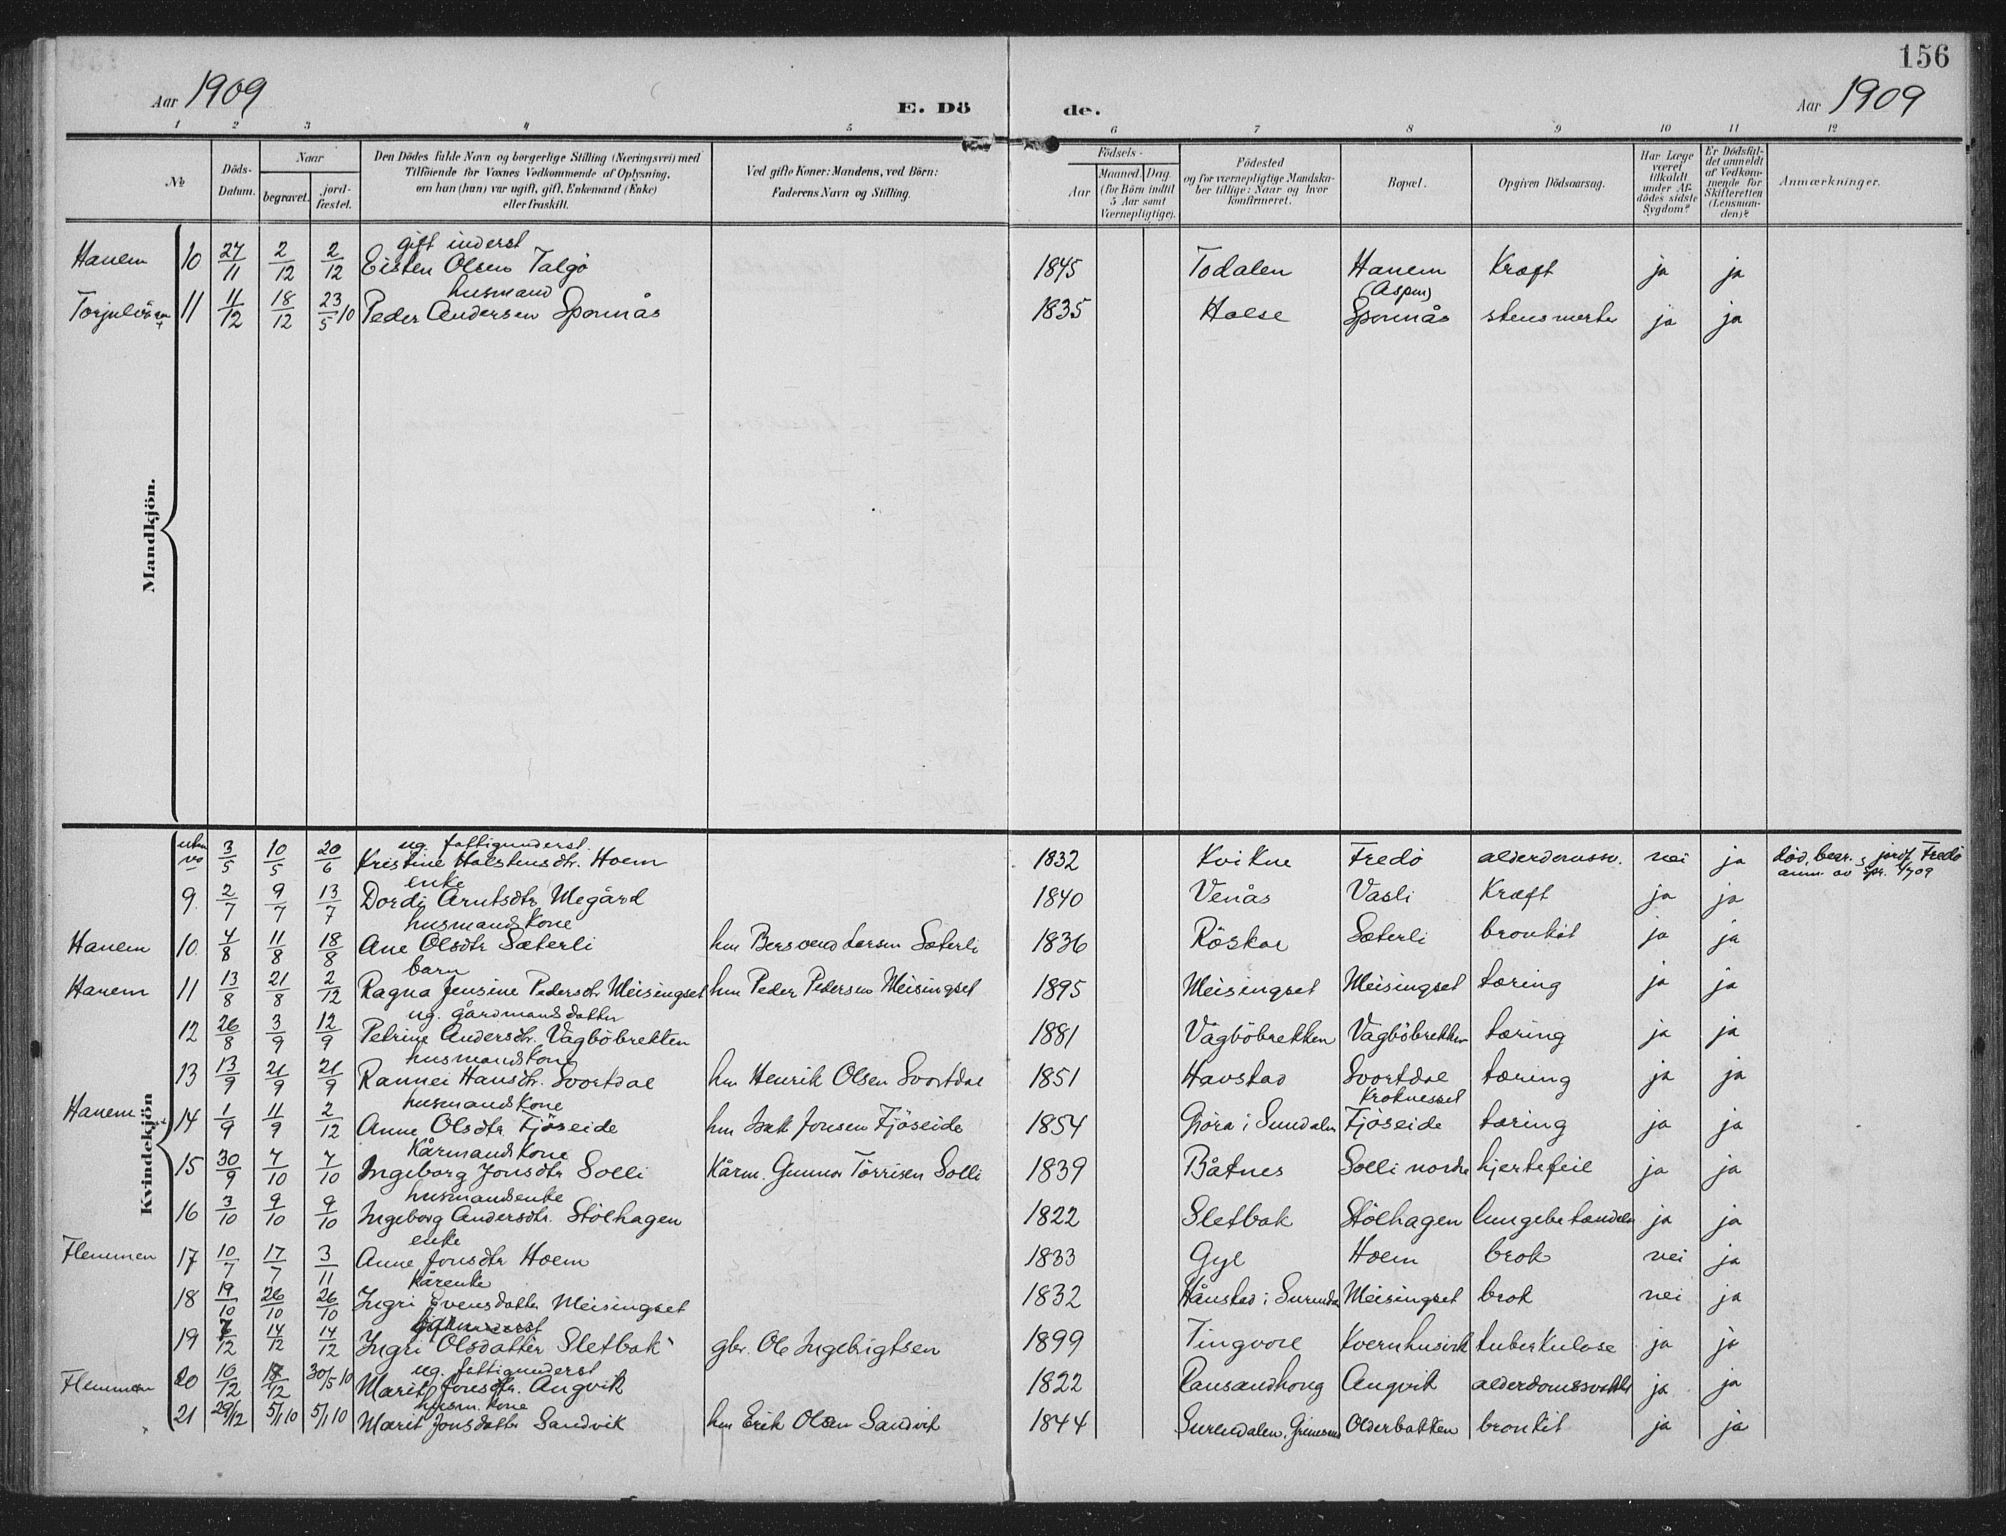 156
Aar 1909 E. Dö de. Aar 1909
1 2 3 4 5 6 7 8 9 10 11 12
No
Döds-Datum.
Naar
begravet.
jord-fæstet.
Den Dödes fulde Navn og borgerlige Stilling (Næringsvei) med
Tilföiende for Voxnes Vedkommende af Oplysning,
om han (hun) var ugift, gift, Enkemand (Enke)
eller fraskilt.
Ved gifte Koner: Mandens, ved Börn:
Faderens Navn og Stilling.
Födsels-
Aar
Maaned. Dag.
(for Börn indtil
5 Aar samt
Værnepligtige).
Födested
og for værnepligtige Mandska-
ber tillige: Naar og hvor
konfirmeret.
Bopæl.
Opgiven Dödsaarsag.
Har Læge
været
tilkaldt
under Af-
dödes sidste
Sygdom?
Er Dödsfal-
det anmeldt
af Vedkom-
mende for
Skifteretten
(Lensman-
den)?
Anmærkninger.
Mandkjön.
gift inderst
Hanem 10 27/11 2/12 2/12 Eisten Olsen Talgö 1845 Todalen Hanem Kræft ja ja
husmand (Aspen)
11 11/12 18/12 23/5 10 Peder Andersen Spornås 1835 Halse Spornås ja ja
Kvindekjön
ug. fattigunderst.
utm 3/5 10/5 20/6 Kristine Halstensdtr. Hoem 1832 Kvikne Fredö alderdomssv. nei ja död, begr. & jordf. Fredö
enke
9. 2/7 9/7 13/7 Dordi Arntsdtr Megård 1840 Venås Vasli Kræft ja ja
husmandskone
Hanem 10. 4/8 11/8 18/8 Ane Olsdtr Sæterli hm Bersvend Larsen Sæterli 1836 Röskar Sæterli bronkit ja ja
barn
Hanem 11 13/8 21/8 2/12 Ragna Jensine Pedersdtr Meisingset hm Peder Pedersen Meisingset 1895 Meisingset Meisingset tæring ja ja
ug. gårdmansdatter
12 26/8 3/9 12/9 Petrine Andersdtr. Vågböbrekken 1881 Vågböbrekken Vågböbrekken tæring ja ja
husmandskone
13 13/9 21/9 21/9 Rannei Hansdtr. Svortdal hm Henrik Olsen Svortdal 1851 Havstad Svortdal tæring ja ja
husmandskone Kroknesset
Hanem 14 1/9 11/9 2/12 Anne Olsdtr Fjöseide hm Isak Jonsen Fjöseide 1854 Gjöra i Sundalen Fjöseide tæring ja ja
Kårmandskone
15 30/9 7/10 7/10 Ingeborg Jonsdtr Solli Kårm. Gunnar Törrisen Solli 1839 Båtnes Solli nordre hjertefeil ja ja
husmandsenke
16 3/10 9/10 9/10 Ingeborg Andersdtr. Stölhagen 1822 Sletbak Stölhagen lungebetændelse ja ja
enke
Flemmen 17 10/7 17/7 3/11 Anne Jonsdtr Hoem 1833 Gyl Hoem brok nei ja
Kårenke
18 19/10 26/10 26/10 Ingri Evensdatter Meisingset 1832 Hånstad i Surendal Meisingset brok nei ja
barn
19 7/12 14/12 14/12 Ingri Olsdatter Sletbak gbr. Ole Ingebrigtsen 1899 Tingvoll Kvernhusvik tuberkulose ja ja
ug. fattigunderst
Flemmen 20 10/12 17/12 30/5 10 Marit Jonsdtr. Angvik 1822 Ransandhaug Angvik alderdomssvakhet ja ja
husm. kone
21 29/12 5/1 10 5/1 10 Marit Jonsdatter Sandvik hm Erik Olsen Sandvik 1844 Surendalen, Olderbakken bronkit ja ja